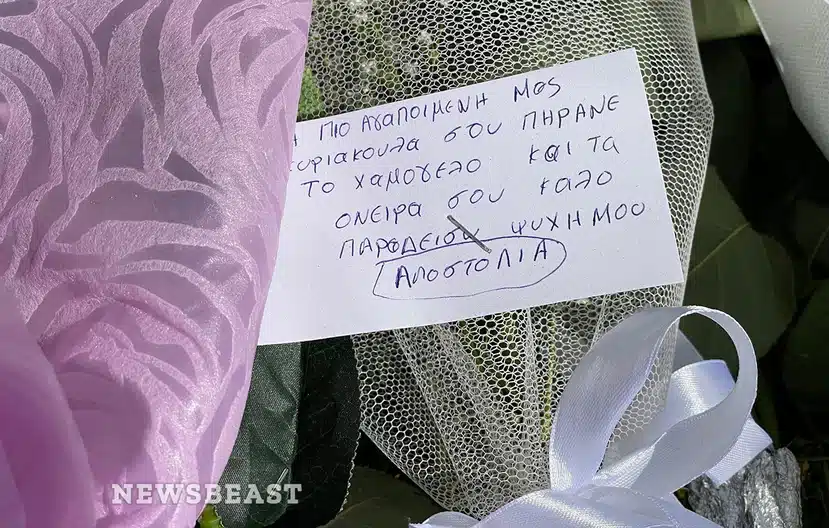 Η ΠΙΟ ΑγΑΠΟΙΜΕΝΗ ΜΑς
κυριακουλα σου ΠΗΡΑΝΕ
ΤΟ χαμογελο και τα
ΟΝΕΙΡΑ σου καλο
ΠΑΡΑΔΕΙσω ψυχη μου
ΑΠΟΣΤΟΛΙΑ
NEWSBEAST